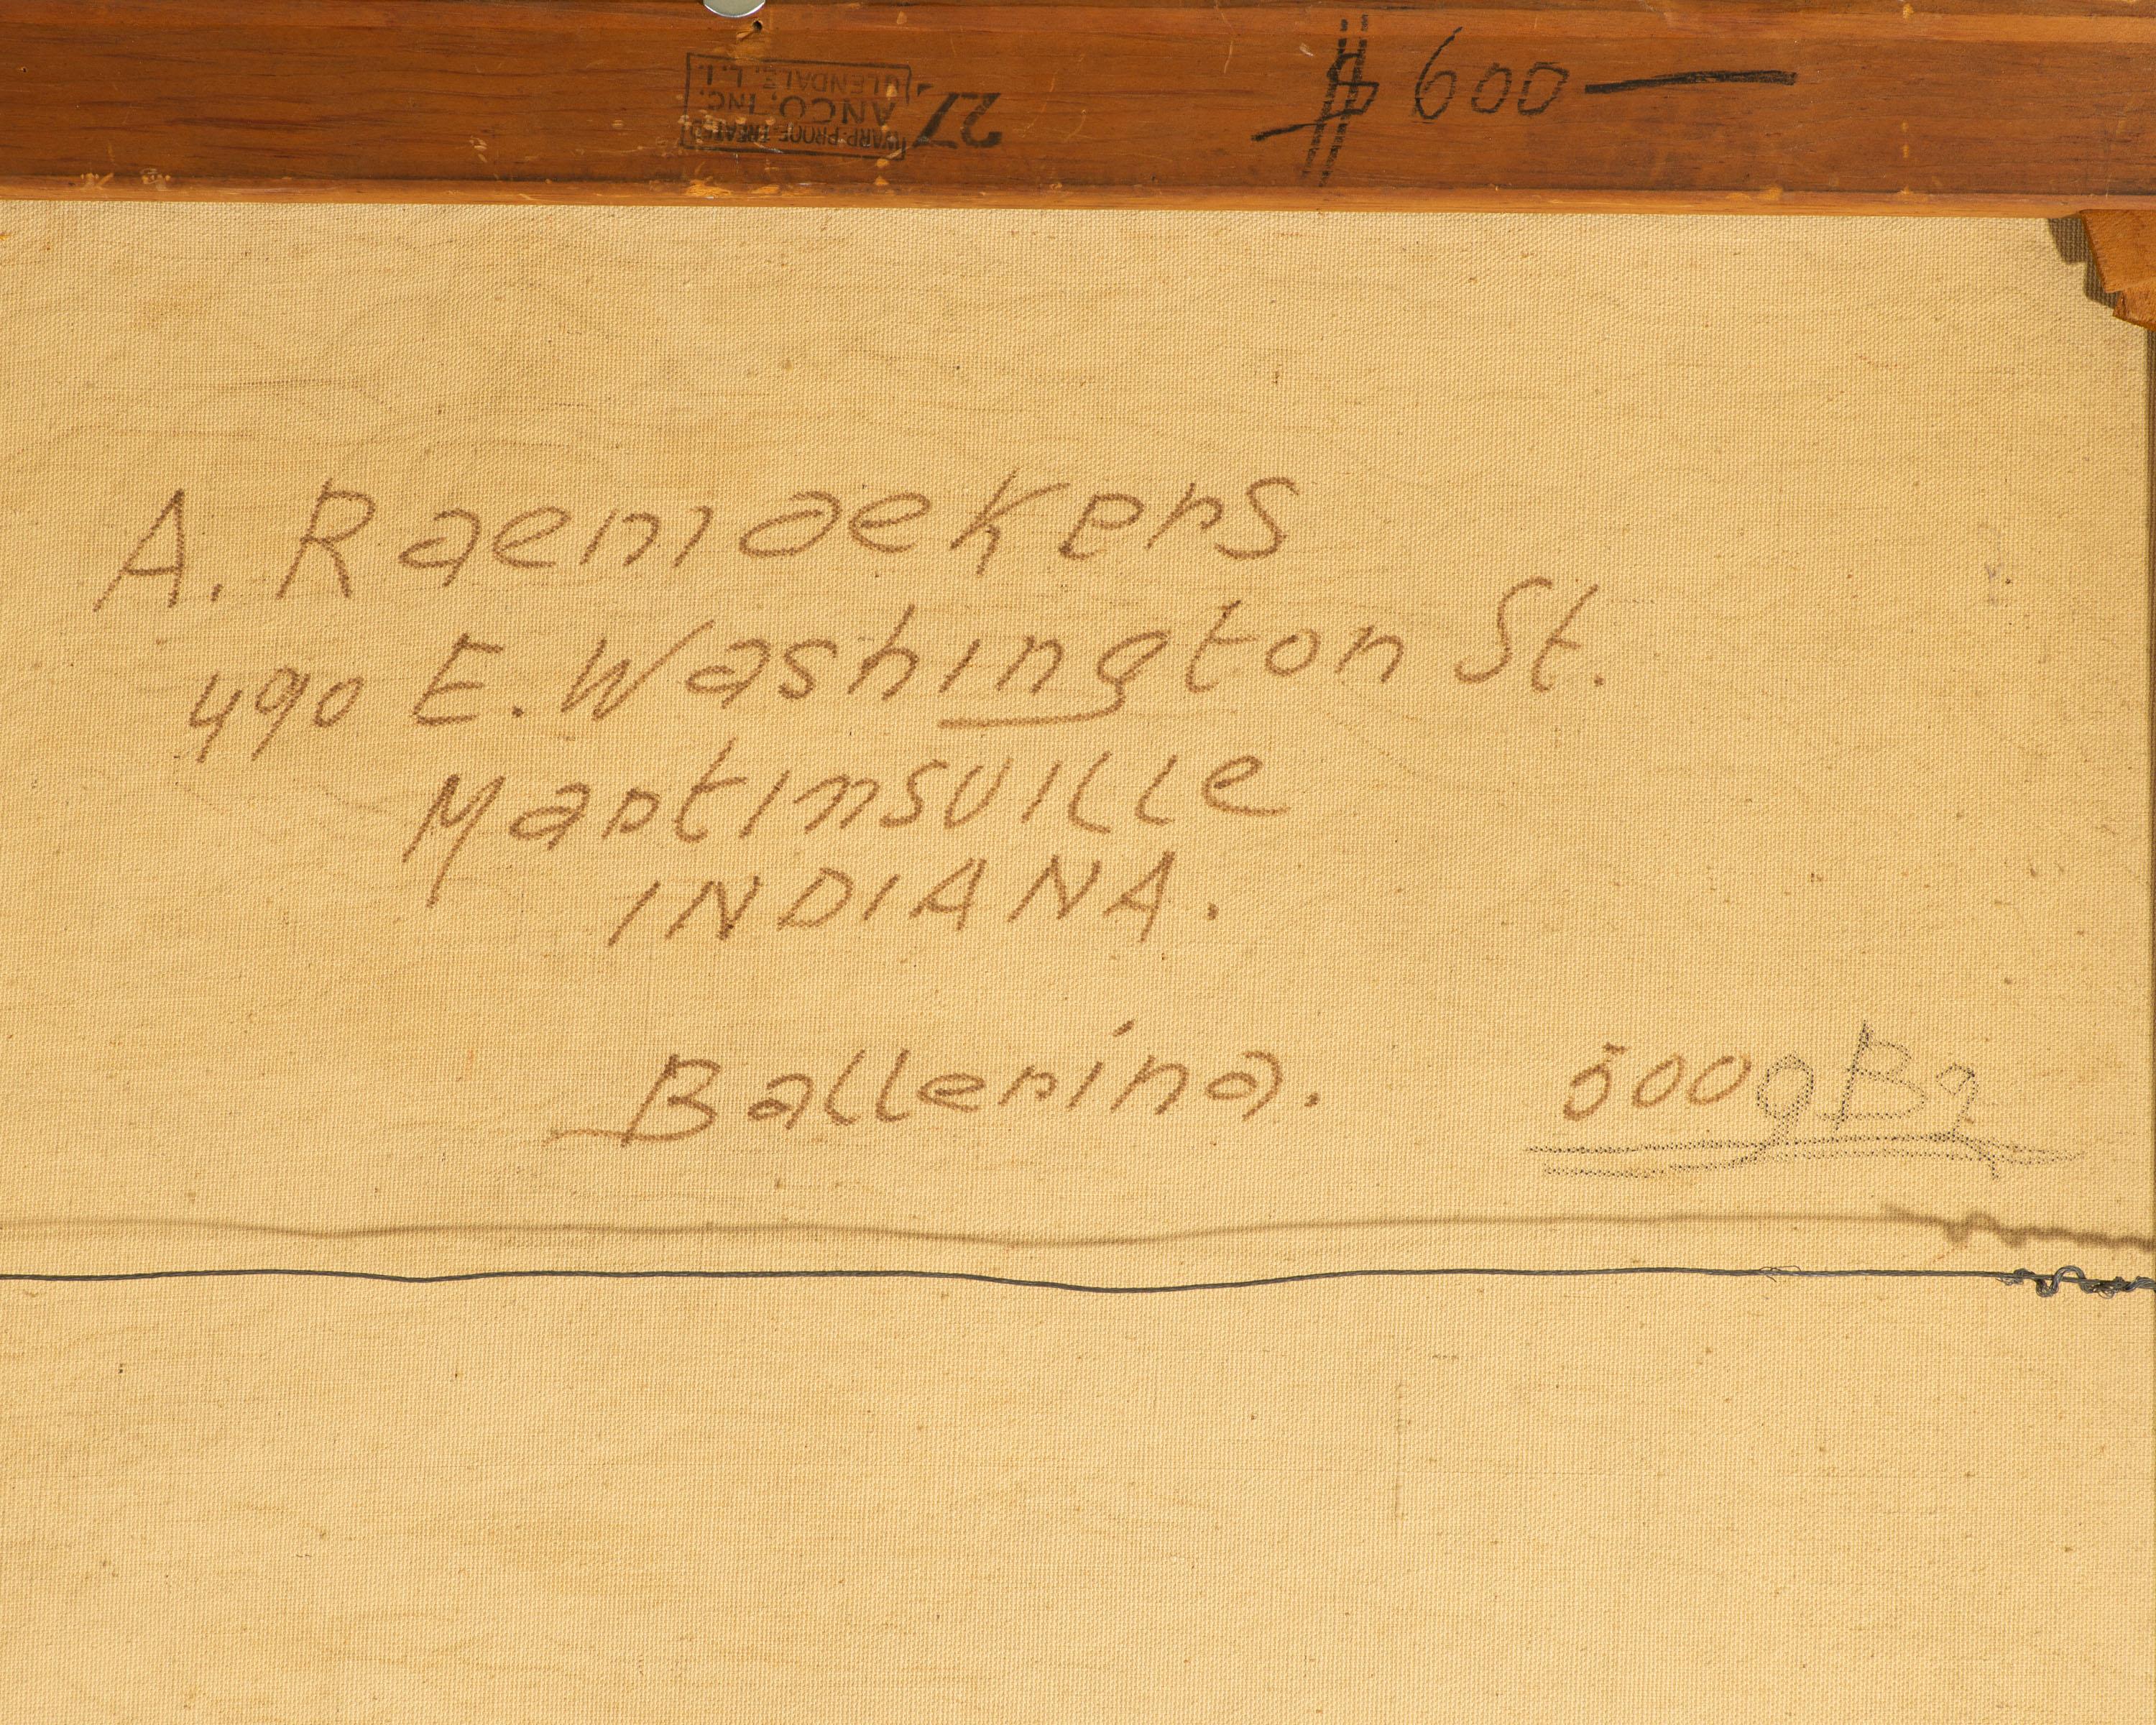 $ 600 —
27
WARP-PROOF TREATED
ANCO, INC.
GLENDALE, L.I.
A. Raemaekers
490 E. Washington St.
Martinsville
INDIANA.
Ballerina. 500